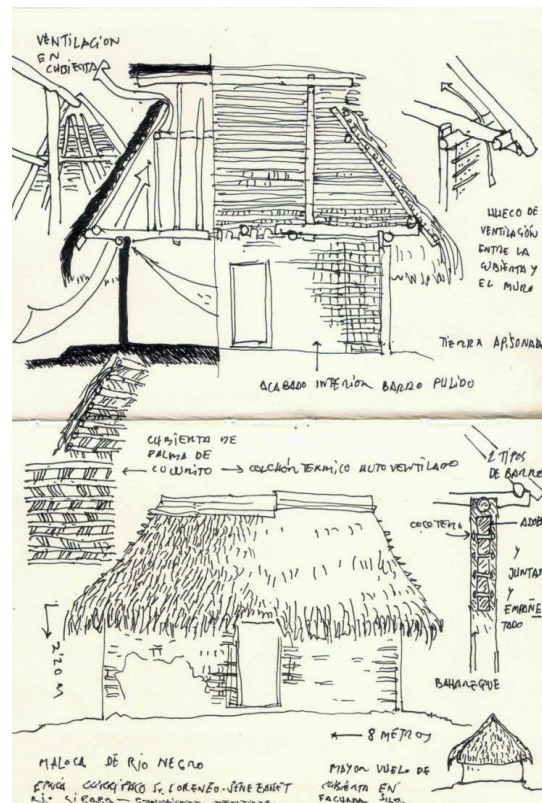 VENTILACION
EN
CUBIERTA
HUECO DE
VENTILACIÓN
ENTRE LA
CUBIERTA Y
EL MURO
TIERRA APISONADA
ACABADO INTERIOR BARRO PULIDO
CUBIERTA DE
PALMA DE
COCURITO → COLCHÓN TERMICO AUTOVENTILADO
2 TIPOS
DE BARRO
COCOTERO
ADOBE
Y
JUNTA
Y
EMPAÑE
TADO
BAHAREQUE
2.20 M
← 8 METROS
MALOCA DE RIO NEGRO
MAYOR VUELO DE
CUBIERTA EN
FACHADA
ETNIA CURRIPACO S. LORENZO
RIO